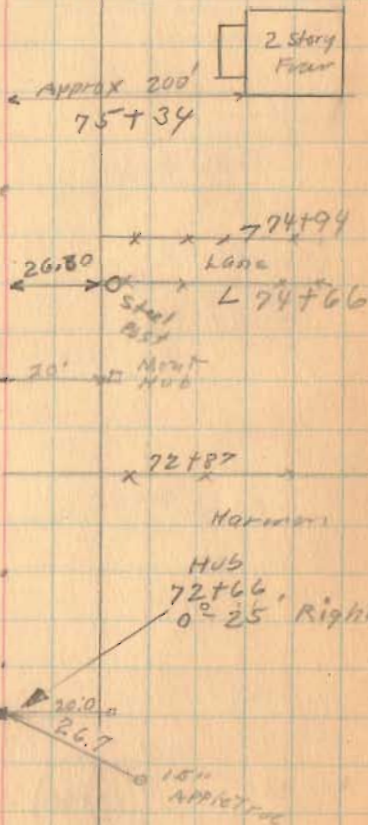 2 Story
Fram
Approx 200'
75+34
74+94
26.80
Lane
74+66
Steel
Post
20'
Hub
72+87
Harmon
Hub
72+66
0°-25' Righ
20.0
26.7
15"
Apple Tree